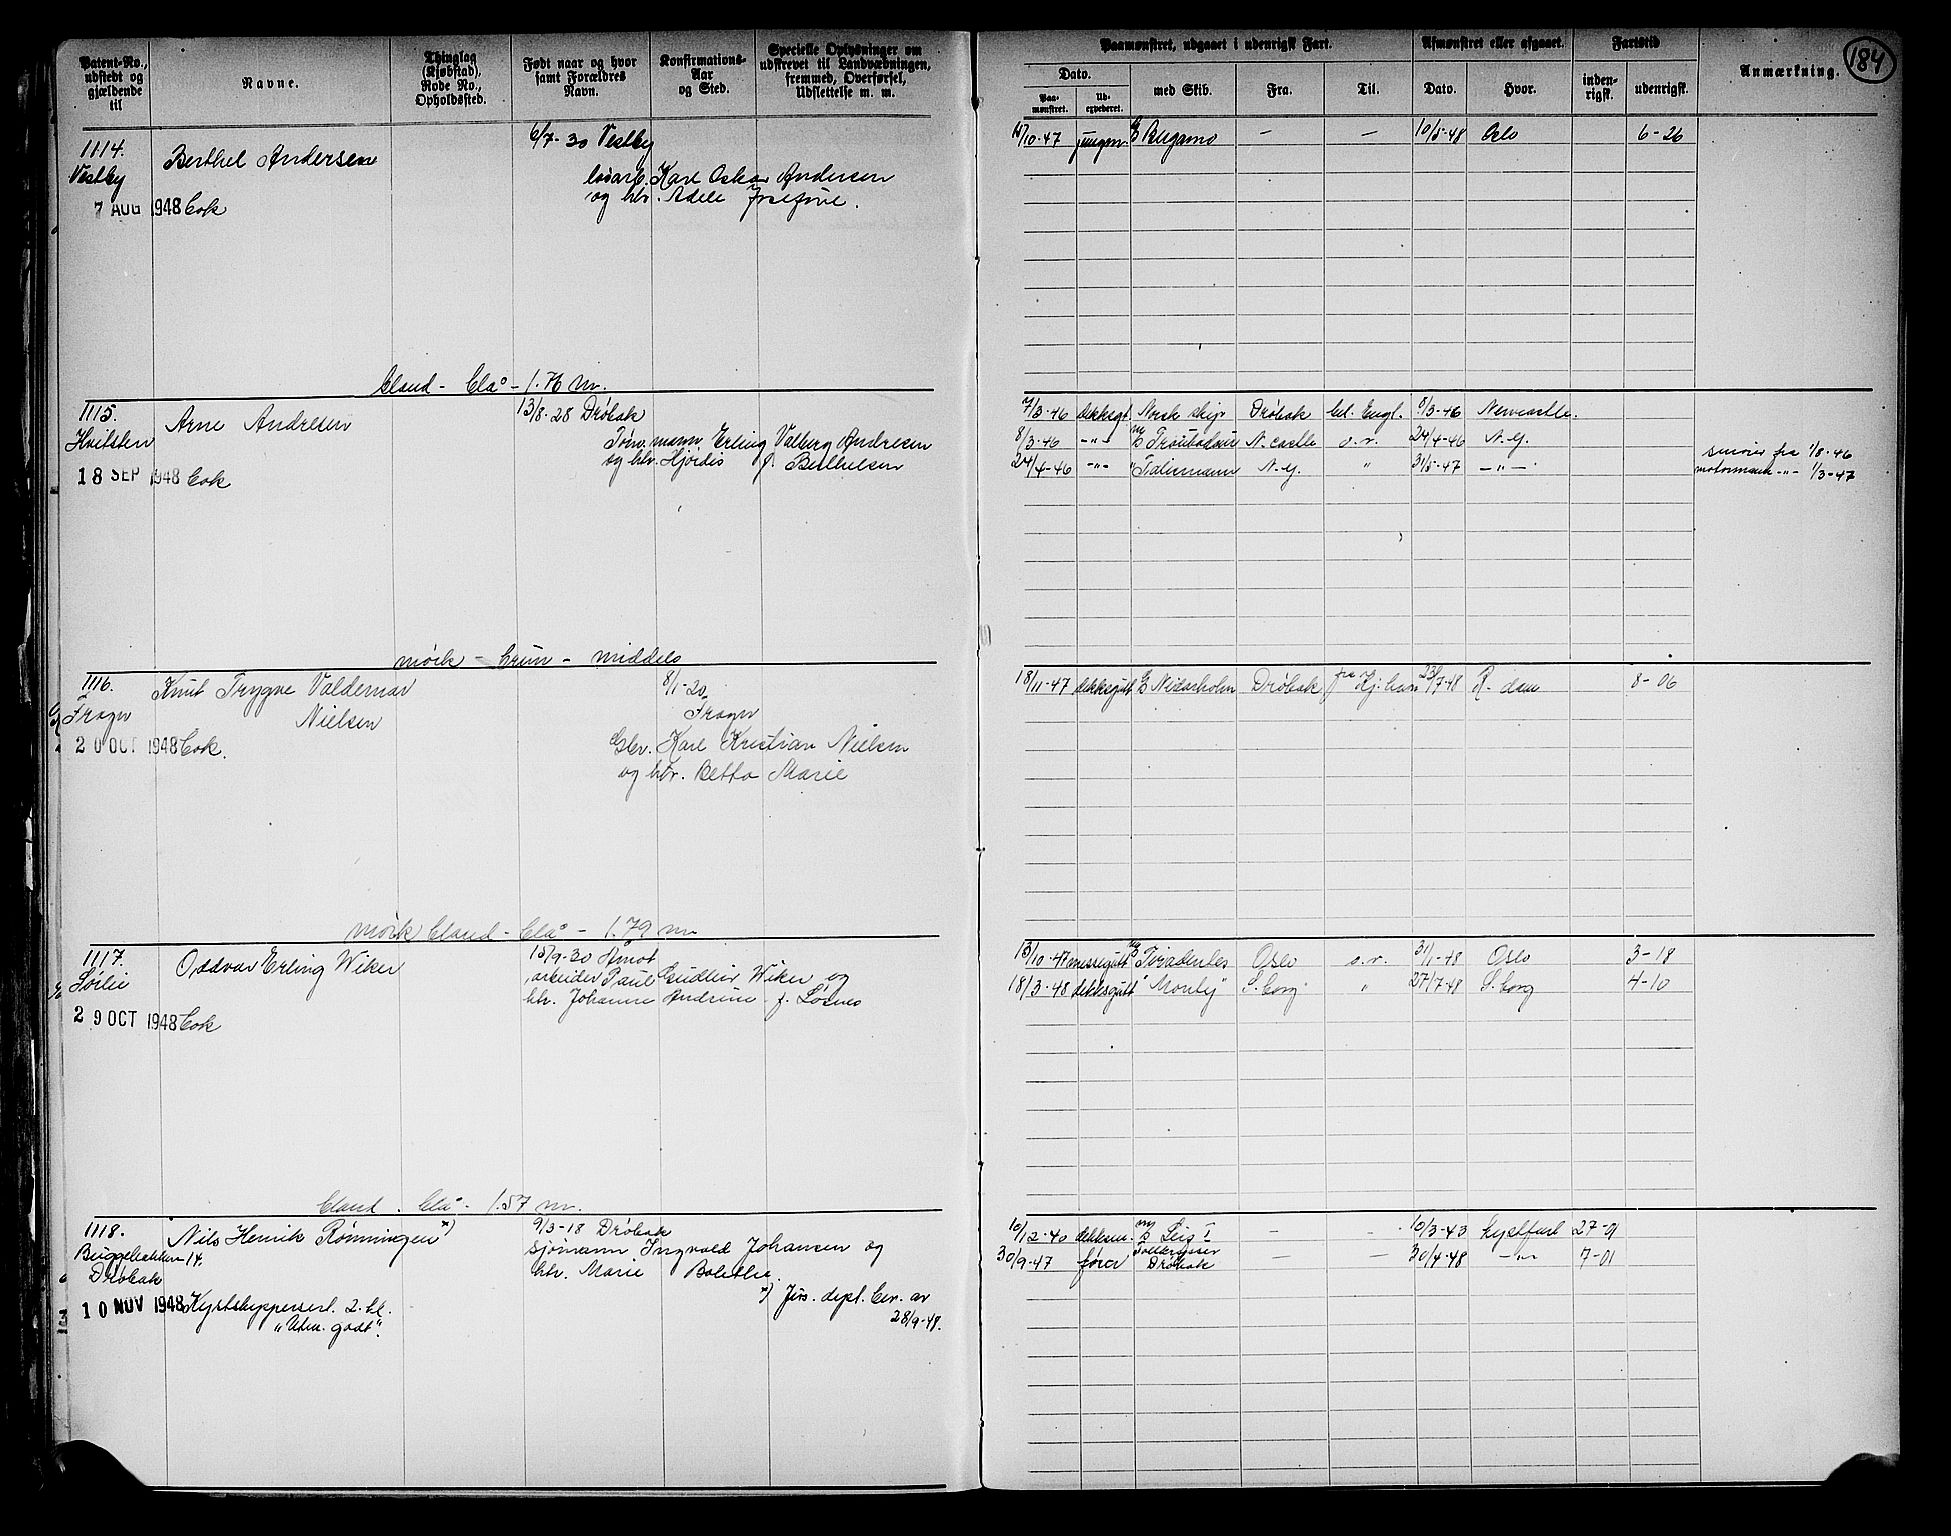 Patent-No., udstedt og gjældende til
Navne.
Thinglag (Kjøbstad), Rode No., Opholdssted.
Født naar og hvor samt Forældres Navn.
Konfirmations-Aar og Sted.
Specielle Oplysninger om udskrevet til Landvæbningen, fremmed, Overførsel, Udslettelse m. m.
Paamønstret, udgaaet i udenrigsk Fart.
Dato.
Paa-mønstret.
Ud-expederet.
med Skib.
Fra.
Til.
Afmønstret eller afgaaet.
Dato.
Hvor.
Fartstid
inden-rigsk.
udenrigsk.
Anmærkning.
184
1114.
Vestby
7 AUG 1948 Cok
Berthel Andersen
6/7-30 Vestby
løsarb. Karl Oskar Andersen
og htr. Adele Josefine.
/10-47 jungm. Bergamo — — 10/5-48 Oslo 6-26
bland - blå - 1.76 m.
1115.
Hvitsten
18 SEP 1948 Cok
Arne Andresen
13/8-28 Drøbak
Tømmermann Erling Valberg Andresen
og htr. Hjørdis f. Berthelsen
7/3-46 dekksgt. Norsk skip Drøbak til Engl. 8/3-46 Newcastle.
8/3-46 -"- Troubadour N. castle o.v. 24/4-46 N.Y.
24/4-46 -"- " Talismann N.Y. " 31/5-47 -"-
smører fra 1/8-46
motormann -"- 1/3-47
mørk - brun - middels
1116.
Frogn
20 OCT 1948 Cok.
Knut Trygve Valdemar
Nielsen
8/1-20
Frogn
Gbr. Karl Kristian Nielsen
og htr. Betta Marie
18/11-47 dekksgutt Nidarholm Drøbak 23/7-48 R.dam 8-06
mørk bland - blå - 1.79 m
1117.
Sørlie
29 OCT 1948 Cok
Oddvar Erling Wiker
15/9-30 Åmot
arbeider Paul Gudleir Wiker og
htr. Johanne Andrine f. Løsnes
13/10-47 messegutt Tiradentes Oslo o.v. 31/1-48 Oslo 3-18
18/3-48 dekksgutt " S.borg " 27/7-48 S.borg 4-10
bland. blå - 1.57 m.
1118.
Bryggebakken 14.
Drøbak
10 NOV 1948 Kystskippersert. 2. kl.
"Uten. godt".
Nils Henrik Rønningen x)
9/3-18 Drøbak
sjømann Ingvald Johansen og
htr. Marie Bolette.
x) Jus. dept. bev. av
28/9-48.
10/12-40 dekksm. Leis I — — 10/3-43 kystfart 27-01
30/9-47 fører Tollkrysser Drøbak — — 30/4-48 -"- 7-01